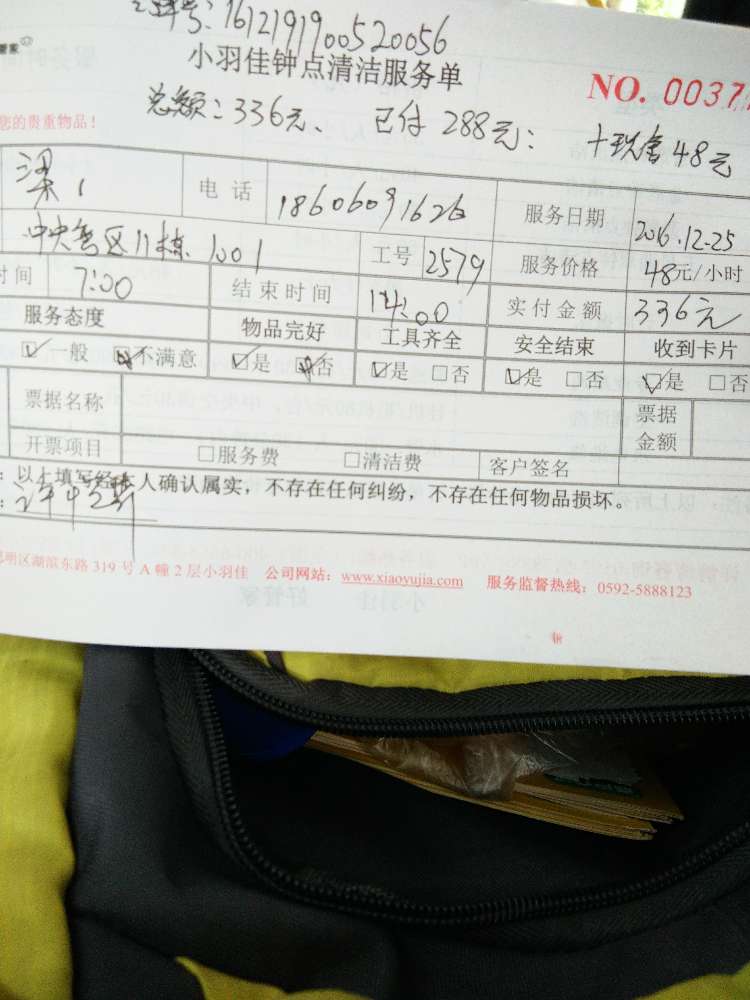 单号:1612191900520056
小羽佳钟点清洁服务单
NO. 0037
总额:336元、 已付288元: 十现售48元
您的贵重物品!
梁 电话 18606091626 服务日期 2016.12.25
中央 区11栋 1001 工号 2579 服务价格 48元/小时
时间 7:00 结束时间 14:00 实付金额 336元
服务态度 物品完好 工具齐全 安全结束 收到卡片
☑一般 ☑不满意 ☑是 ☑否 ☑是 □否 ☑是 □否 ☑是 □否
票据名称 票据金额
开票项目 □服务费 □清洁费 客户签名
:以上填写经本人确认属实,不存在任何纠纷,不存在任何物品损坏。
明区湖滨东路319号A幢2层小羽佳 公司网站:www.xiaoyujia.com 服务监督热线:0592-5888123